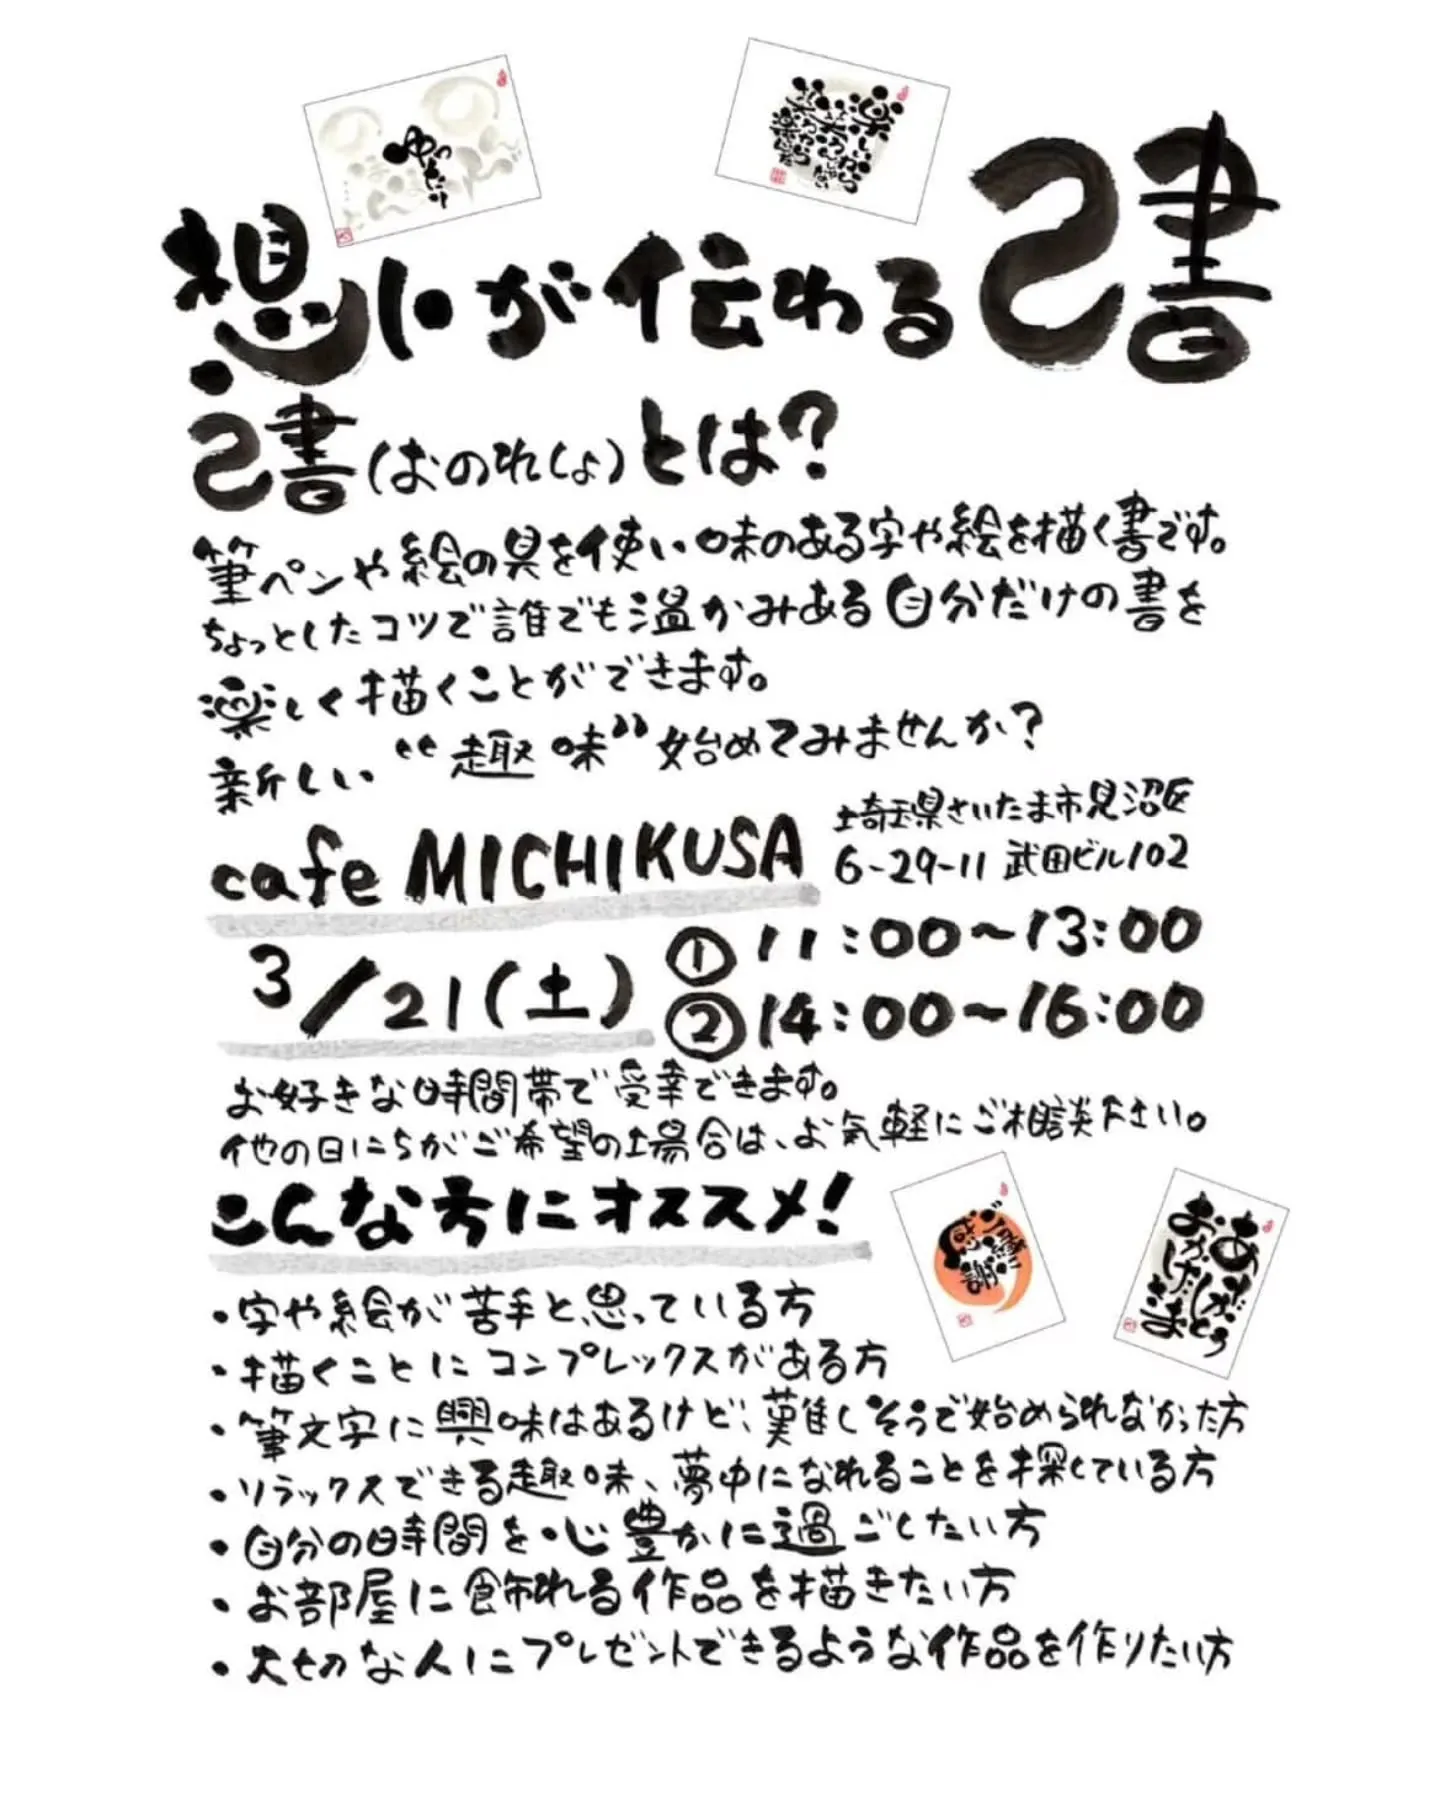 ゆったり
楽しいから
笑うんじゃない
笑うから
楽しいんだ
想いが伝わる己書
己書(おのれしょ)とは?
筆ペンや絵の具を使い味のある字や絵を描く書です。
ちょっとしたコツで誰でも温かみある自分だけの書を
楽しく描くことができます。
新しい“趣味”始めてみませんか?
cafe MICHIKUSA
埼玉県さいたま市見沼区
6-29-11 武田ビル102
3/21(土)
① 11:00~13:00
② 14:00~16:00
お好きな時間帯で受幸できます。
他の日にちがご希望の場合は、お気軽にご相談下さい。
こんな方にオススメ!
ご縁に
感謝
ありがとう
おかげさま
・字や絵が苦手と思っている方
・描くことにコンプレックスがある方
・筆文字に興味はあるけど、難しそうで始められなかった方
・リラックスできる趣味、夢中になれることを探している方
・自分の時間を心豊かに過ごしたい方
・お部屋に飾れる作品を描きたい方
・大切な人にプレゼントできるような作品を作りたい方